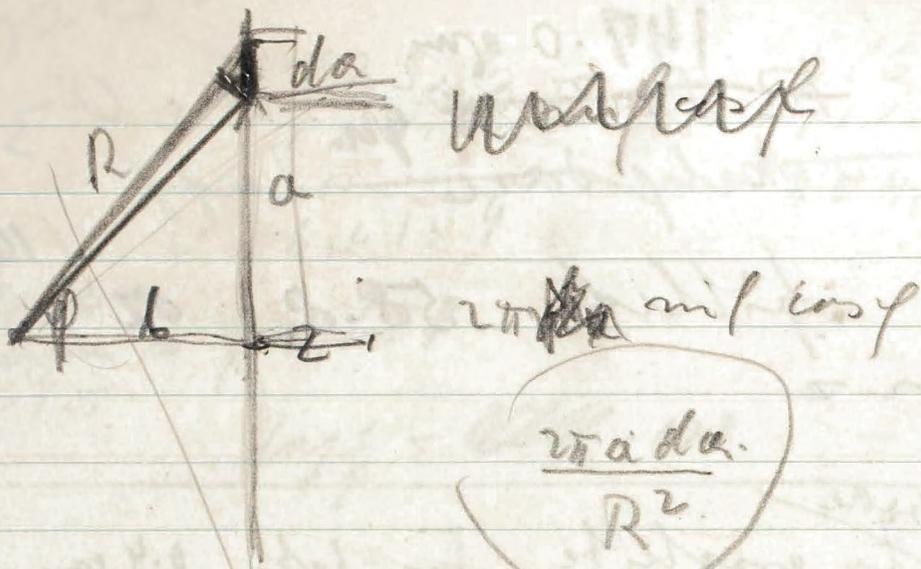 da
R
a
φ b z
2π sinφ cosφ
2π a da
R²